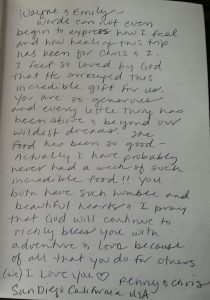 Wayne & Emily
Words can not even
begin to express how I feel
and how healing this trip
has been for Chris & I.
I feel so loved by God
that He arranged this
incredible gift for us.
You are so generous
and every little thing has
been above & beyond our
wildest dreams. The
food has been so good -
Actually I have probably
never had a week of such
incredible food!! You
both have such humble and
beautiful hearts & I pray
that God will continue to
richly bless you with
adventure & love because
of all that you do for others
(we) I Love you ♡
Penny & Chris
San Diego California USA